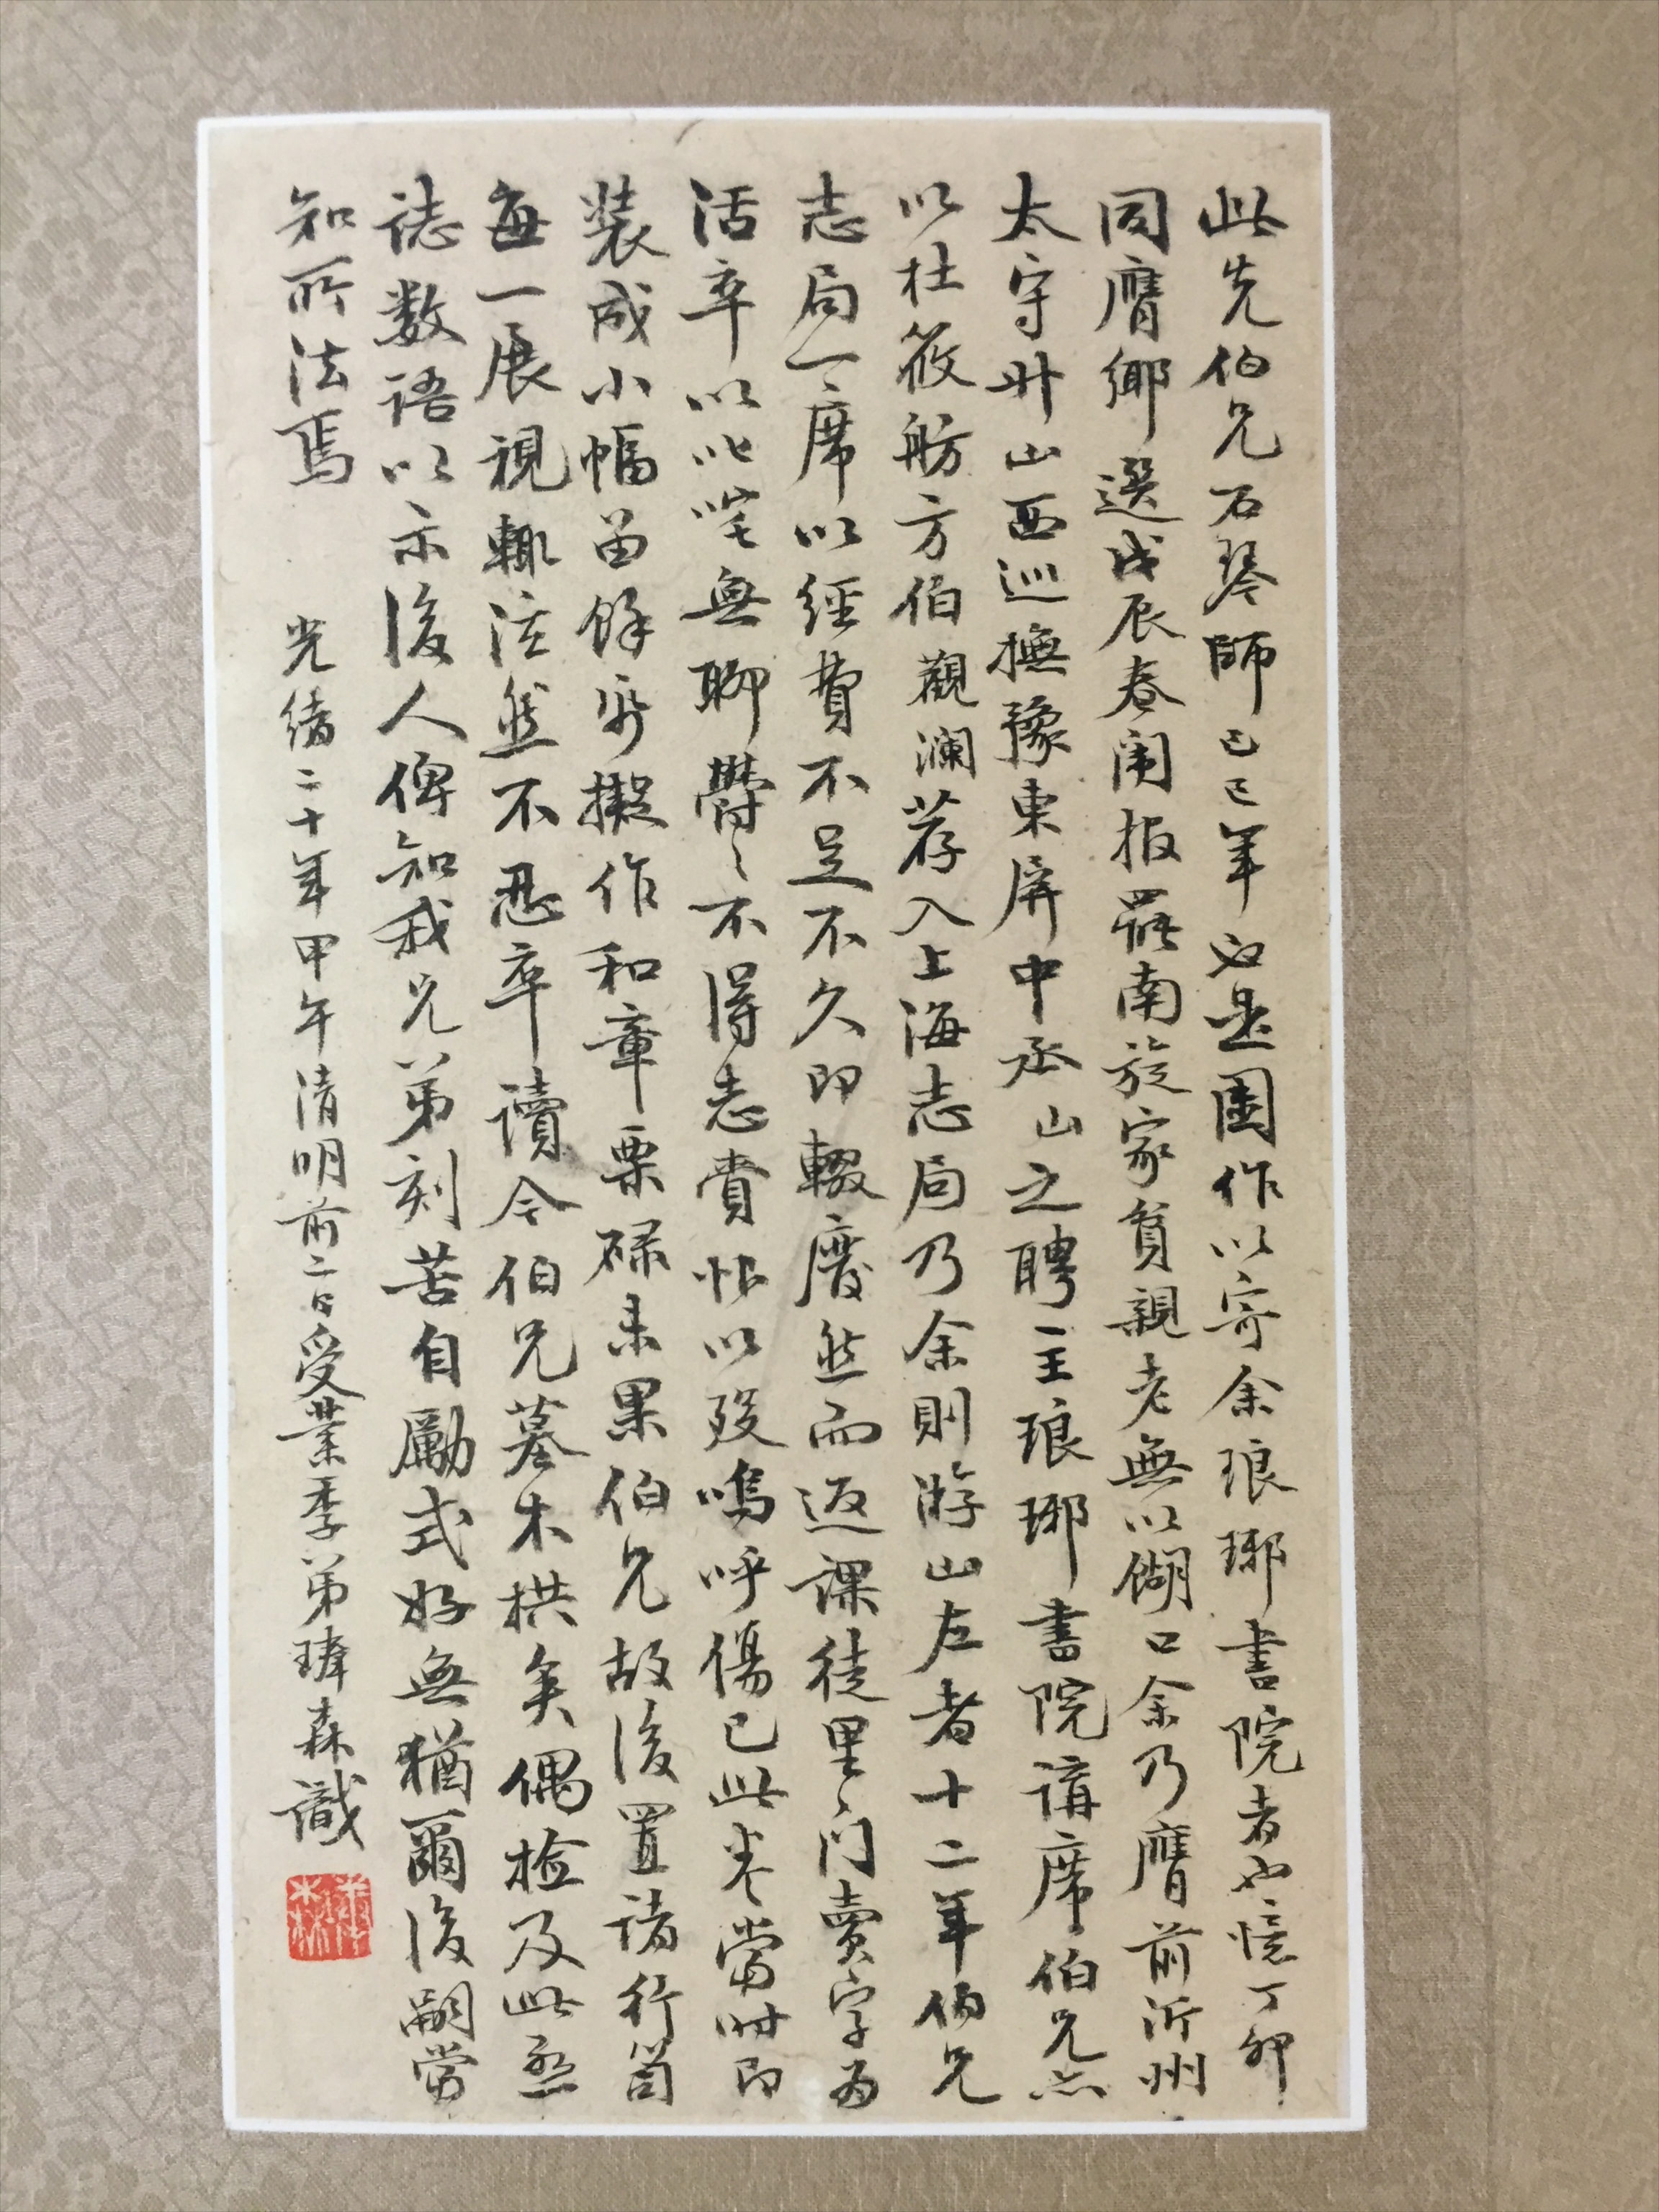 此先伯兄石琴師己巳年政是圖作以寄余琅琊書院者也憶丁卯
同膺鄉選戊辰春闈報罷南旋家貧親老無以餬口余乃膺前沂州
太守升山西巡撫豫東屏中丞山之聘主琅琊書院講席伯兄亦
以杜筱舫方伯觀瀾荐入上海志局乃余則游山左者十二年伯兄
志局一席以經費不足不久即輟廢然而返課徒里門賣字為
活卒以坎壈無聊鬱々不得志賁怅以歿嗚呼傷已此卷當時即
裝成小幅留餘帋擬作和章栗碌未果伯兄故後置諸行笥
每一展視輒泫然不忍卒讀今伯兄墓木拱矣偶檢及此爰
誌數語以示後人俾知我兄弟刻苦自勵式好無猶爾後嗣當
知所法焉 光緒二十年甲午清明前二日受業季弟瑋森識